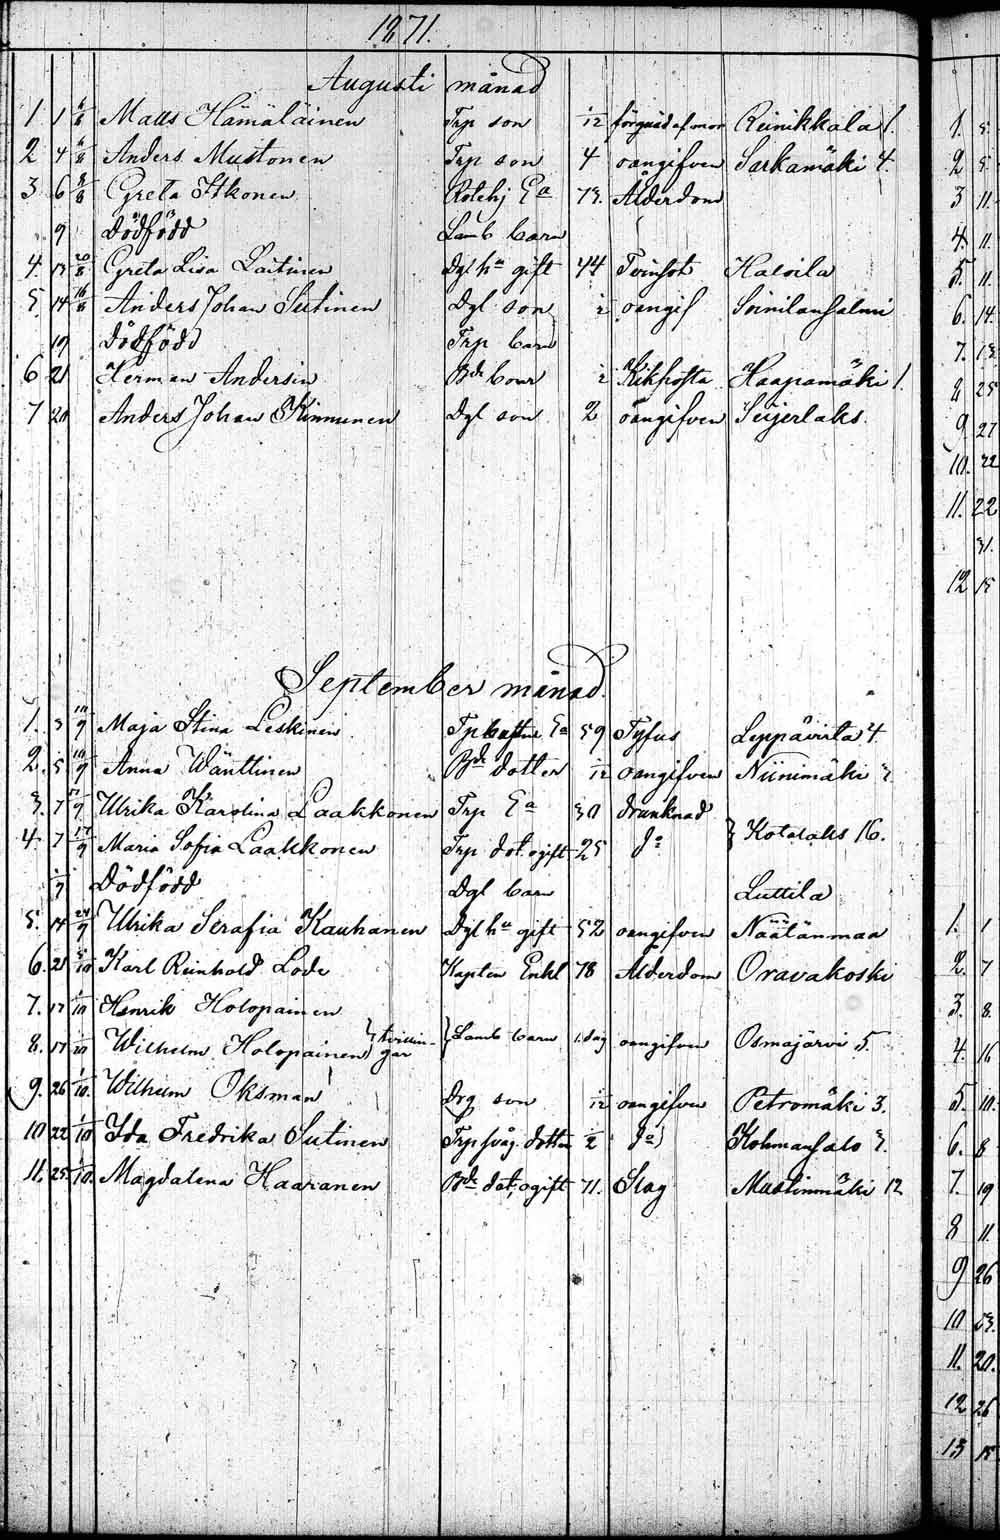 1871.
Augusti månad
1 1 6/8 Matts Hämäläinen Trp son 1/12 förqväd af mor Reinikkala 1.
2 4 6/8 Anders Mustonen Trp son 4 oangifven Sarkamäki 4.
3 6 8/8 Greta Itkonen Rotehj Ea 73. Ålderdom
9 Dödfödd Lamb barn
4. 13 20/8 Greta Lisa Laitinen Dgl hu gift 44 Tvinsot Halola
5. 14 16/8 Anders Johan Sutinen Dgl son oangif Soinilansalmi
19 Dödfödd Trp barn
6 21 Herman Andersin Bde Kikhosta Haapamäki 1
7 20 Anders Johan Kinnunen Dgl son 2 oangifven Seijerlaks.
September månad.
1. 3 10/9 Maja Stina Leskinen Ea 59 Tyfus Leppävirta 4.
2. 5 10/9 Anna Wänttinen Bde dotter 1/12 oangifven Niinimäki
3. 7 17/9 Ulrika Karolina Laakkonen Trp Ea 30 drunknad
4. 7 17/9 Maria Sofia Laakkonen Trp dot. ogift 25 Do } Kotalaks 16.
7 Dödfödd Dgl barn Luttila
5. 14 24/9 Ulrika Serafia Kauhanen Dgl hu gift 52 oangifven Näätänmaa
6. 21 5/10 Karl Reinhold Lode Kapten Enkl 78 Ålderdom Oravakoski
7. 17 1/10 Henrik Holopainen
8. 17 1/10 Wilhelm Holopainen } tvillingar } Lamb barn 1. dag oangifven Osmajärvi 5.
9. 26 1/10. Wilhelm Oksman Drg son 1/12 oangifven Petromäki 3.
10 22 1/10 Ida Fredrika Sutinen Trp dotter 1/2 Do Kohmansalo 3.
11. 25. 1/10. Magdalena Haaranen Bde dot, ogift 71. Slag Mustinmäki 12
1. 5.
2 5
3 11.
4. 11.
5. 11.
6. 14.
7. 13
8 25
9 27
10. 22
11. 22
31.
12 15
1. 1
2. 7
3. 8.
4. 16
5. 10.
6. 8
7. 19
8 11.
9 26
10 23.
11. 20.
12 26
13 15